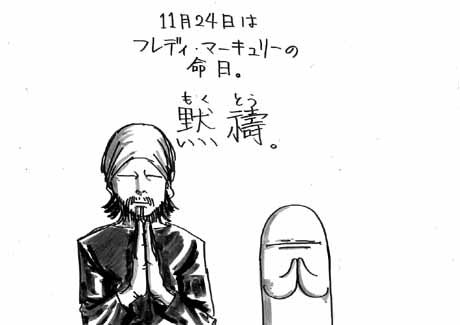 11月24日は
フレディ・マーキュリーの
命日。
もくとう
黙禱。